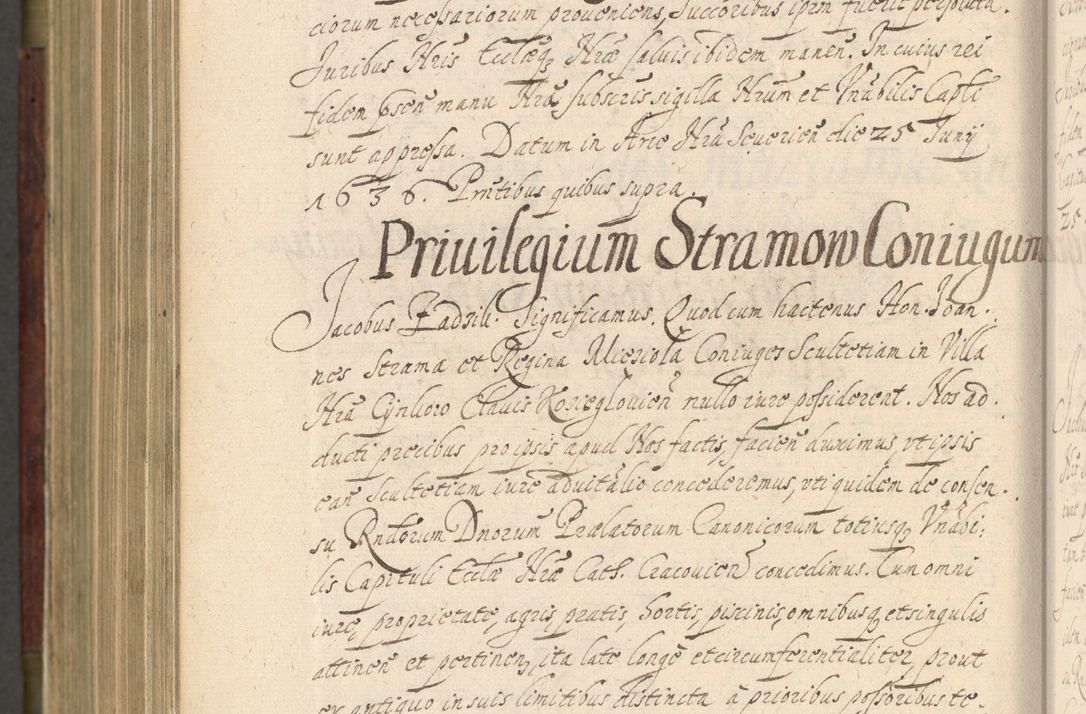 ciorum necessariorum proveniens, Succoribus ipm fuerit persoluta.
Juribus Nris Ecclæq Nræ salvis ibidem manen. In cuius rei
fidem psen manu Nra subscris sigilla Nrum et Vnabilis Capli
sunt appressa. Datum in Arce Nra Severien die 25 Junij
1636. Pntibus quibus supra.
Privilegium Stramow Coniugum
Jacobus Zadsik. Significamus. Quod cum hactenus Hon. Joan.
nes Strama et Regina Mierziola Coniuges Scultetiam in Villa
Nra Cynkoro Clavis Kozieglovien nullo iure possiderent. Nos ad.
ducti precibus pro ipsis apud Nos factis, facien duximus, vt ipsis
ean Scultetiam iure advitalio concederemus, vti quidem de consen.
su Rndorum Dnorum Prælatorum Canonicorum totiusq Vnabi:
lis Capituli Ecclæ Nræ Cath. Cracovien concedimus. Cum omni
iure, proprietate, agris, pratis, hortis, piscinis, omnibusq et singulis
attinen et pertinen, ita late longe et circumferentialiter, prout
ex antiquo in suis limitibus distincta à prioribus possoribus te.